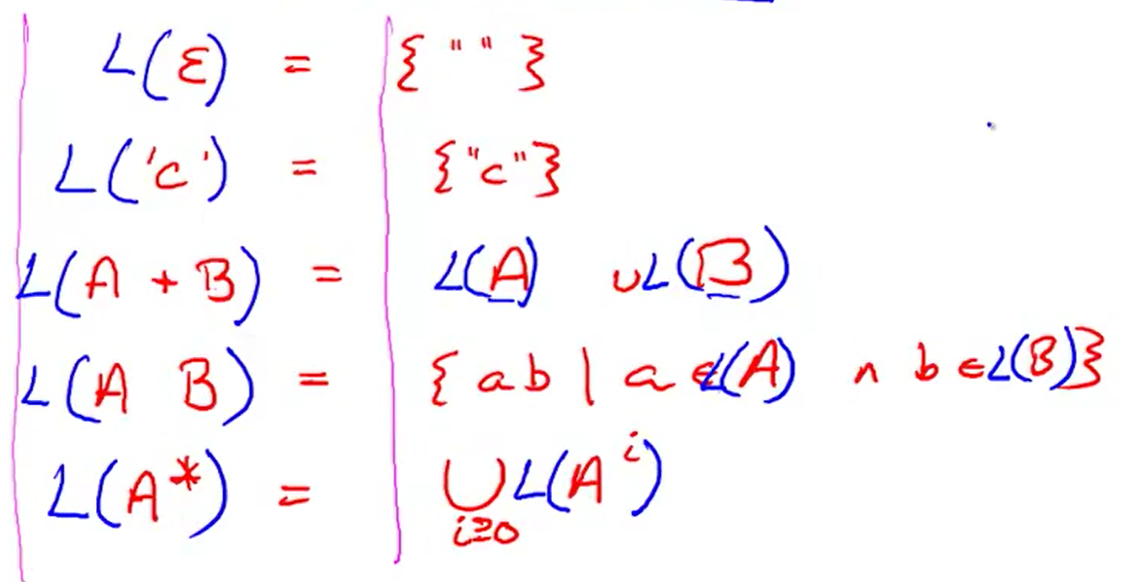 L(ε) = {" "}
L('c') = {"c"}
L(A + B) = L(A) ∪ L(B)
L(A B) = {ab | a ∈ L(A) ∧ b ∈ L(B)}
L(A*) = ⋃ L(Aⁱ)
i≥0